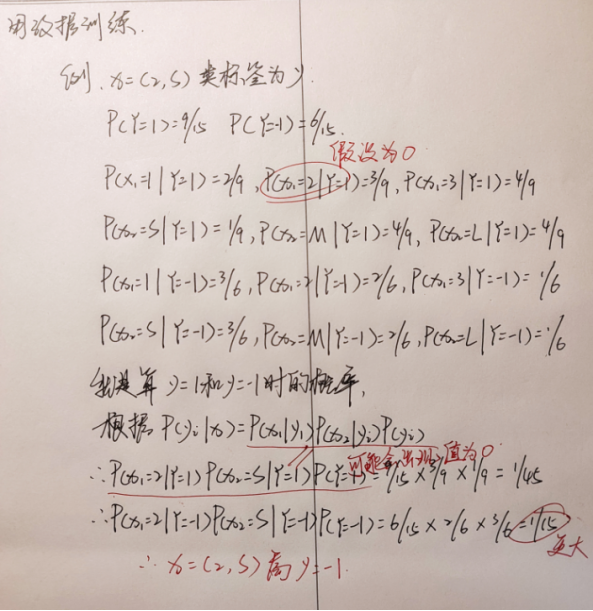 用数据训练.
例. x=(2,S) 类标签为y.
P(Y=1)=9/15 P(Y=-1)=6/15.
假设为0
P(x₁=1|Y=1)=2/9, P(x₁=2|Y=1)=3/9, P(x₁=3|Y=1)=4/9
P(x₂=S|Y=1)=1/9, P(x₂=M|Y=1)=4/9, P(x₂=L|Y=1)=4/9
P(x₁=1|Y=-1)=3/6, P(x₁=2|Y=-1)=2/6, P(x₁=3|Y=-1)=1/6
P(x₂=S|Y=-1)=3/6, P(x₂=M|Y=-1)=2/6, P(x₂=L|Y=-1)=1/6
就是算 y=1和y=-1时的概率,
根据 P(yᵢ|x)=P(x₁|yᵢ)P(x₂|yᵢ)P(yᵢ)
可能会出现值为0
∴P(x₁=2|Y=1)P(x₂=S|Y=1)P(Y=1)=9/15×3/9×1/9=1/45
∴P(x₁=2|Y=-1)P(x₂=S|Y=-1)P(Y=-1)=6/15×2/6×3/6=1/15
更大
∴ x=(2,S) 时y=-1.